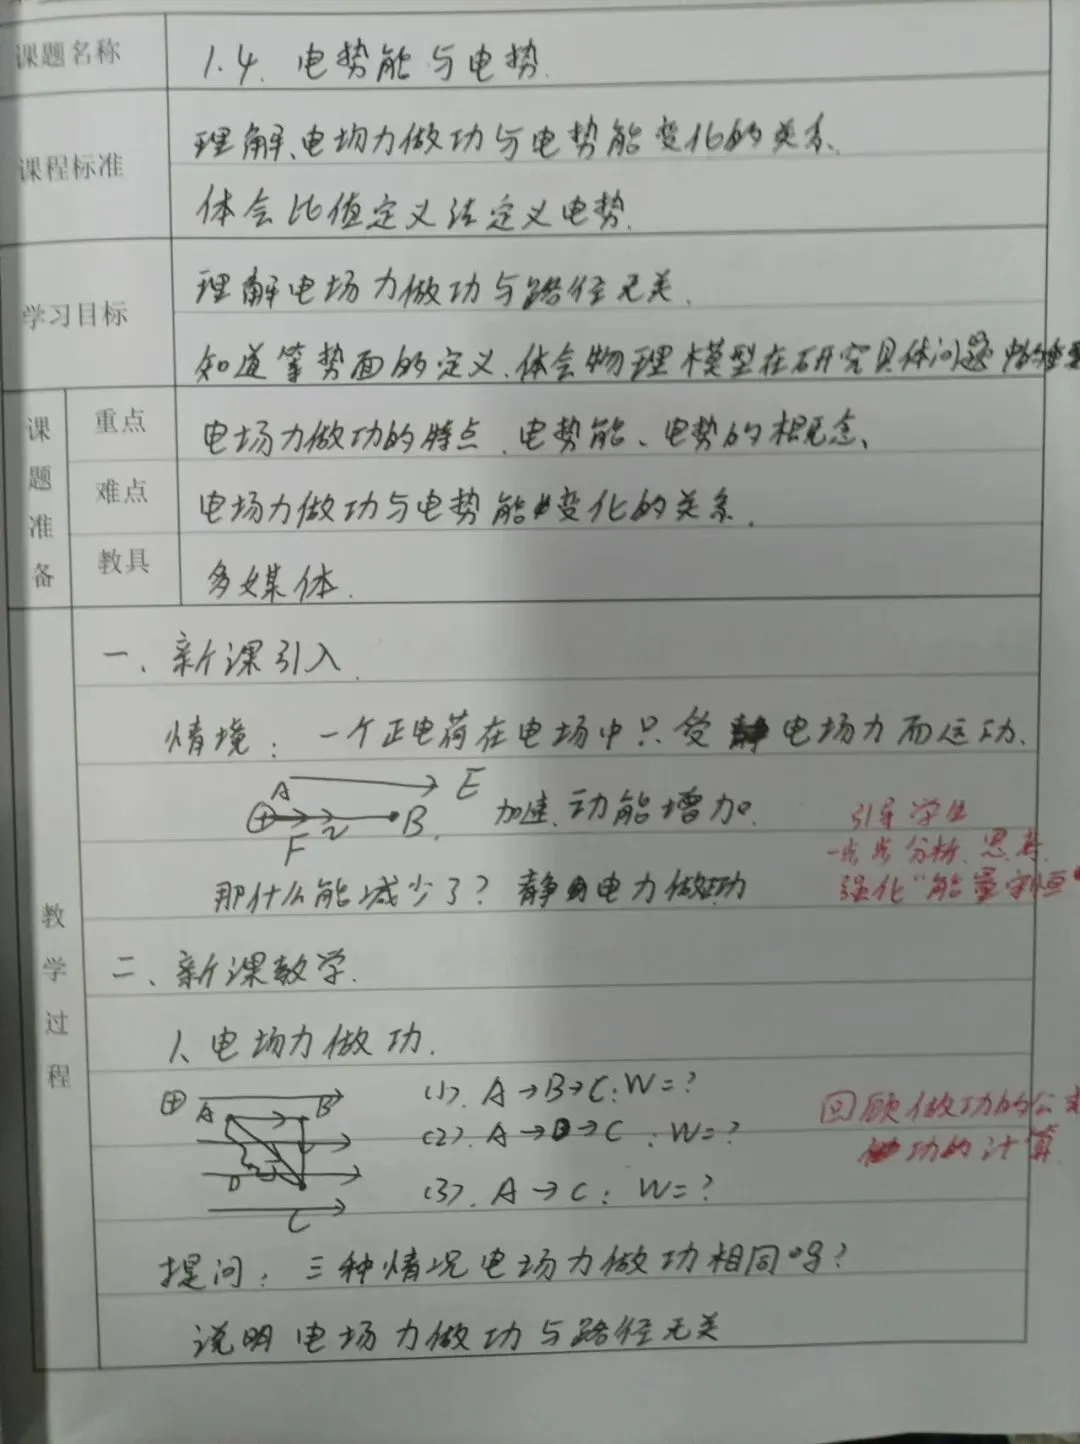 课题名称 1.4. 电势能与电势.
课程标准
理解、电场力做功与电势能变化的关系.
体会比值定义法定义电势.
学习目标
理解电场力做功与路径无关.
知道等势面的定义、体会物理模型在研究具体问题
课题准备
重点 电场力做功的特点、电势能、电势的概念、
难点 电场力做功与电势能变化的关系.
教具 多媒体.
教学过程
一、新课引入.
情境: 一个正电荷在电场中只受电场力而运动.
A E
⊕ F v B. 加速、动能增加. 引导学生
一步步分析、思考.
那什么能减少了? 静电力做功 强化"能量守恒"
二、新课教学.
1、电场力做功.
⊕ A B (1). A→B→C: W=?
(2). A→D→C: W=? 回顾做功的公式
D (3). A→C: W=? 功的计算
C
提问: 三种情况电场力做功相同吗?
说明电场力做功与路径无关